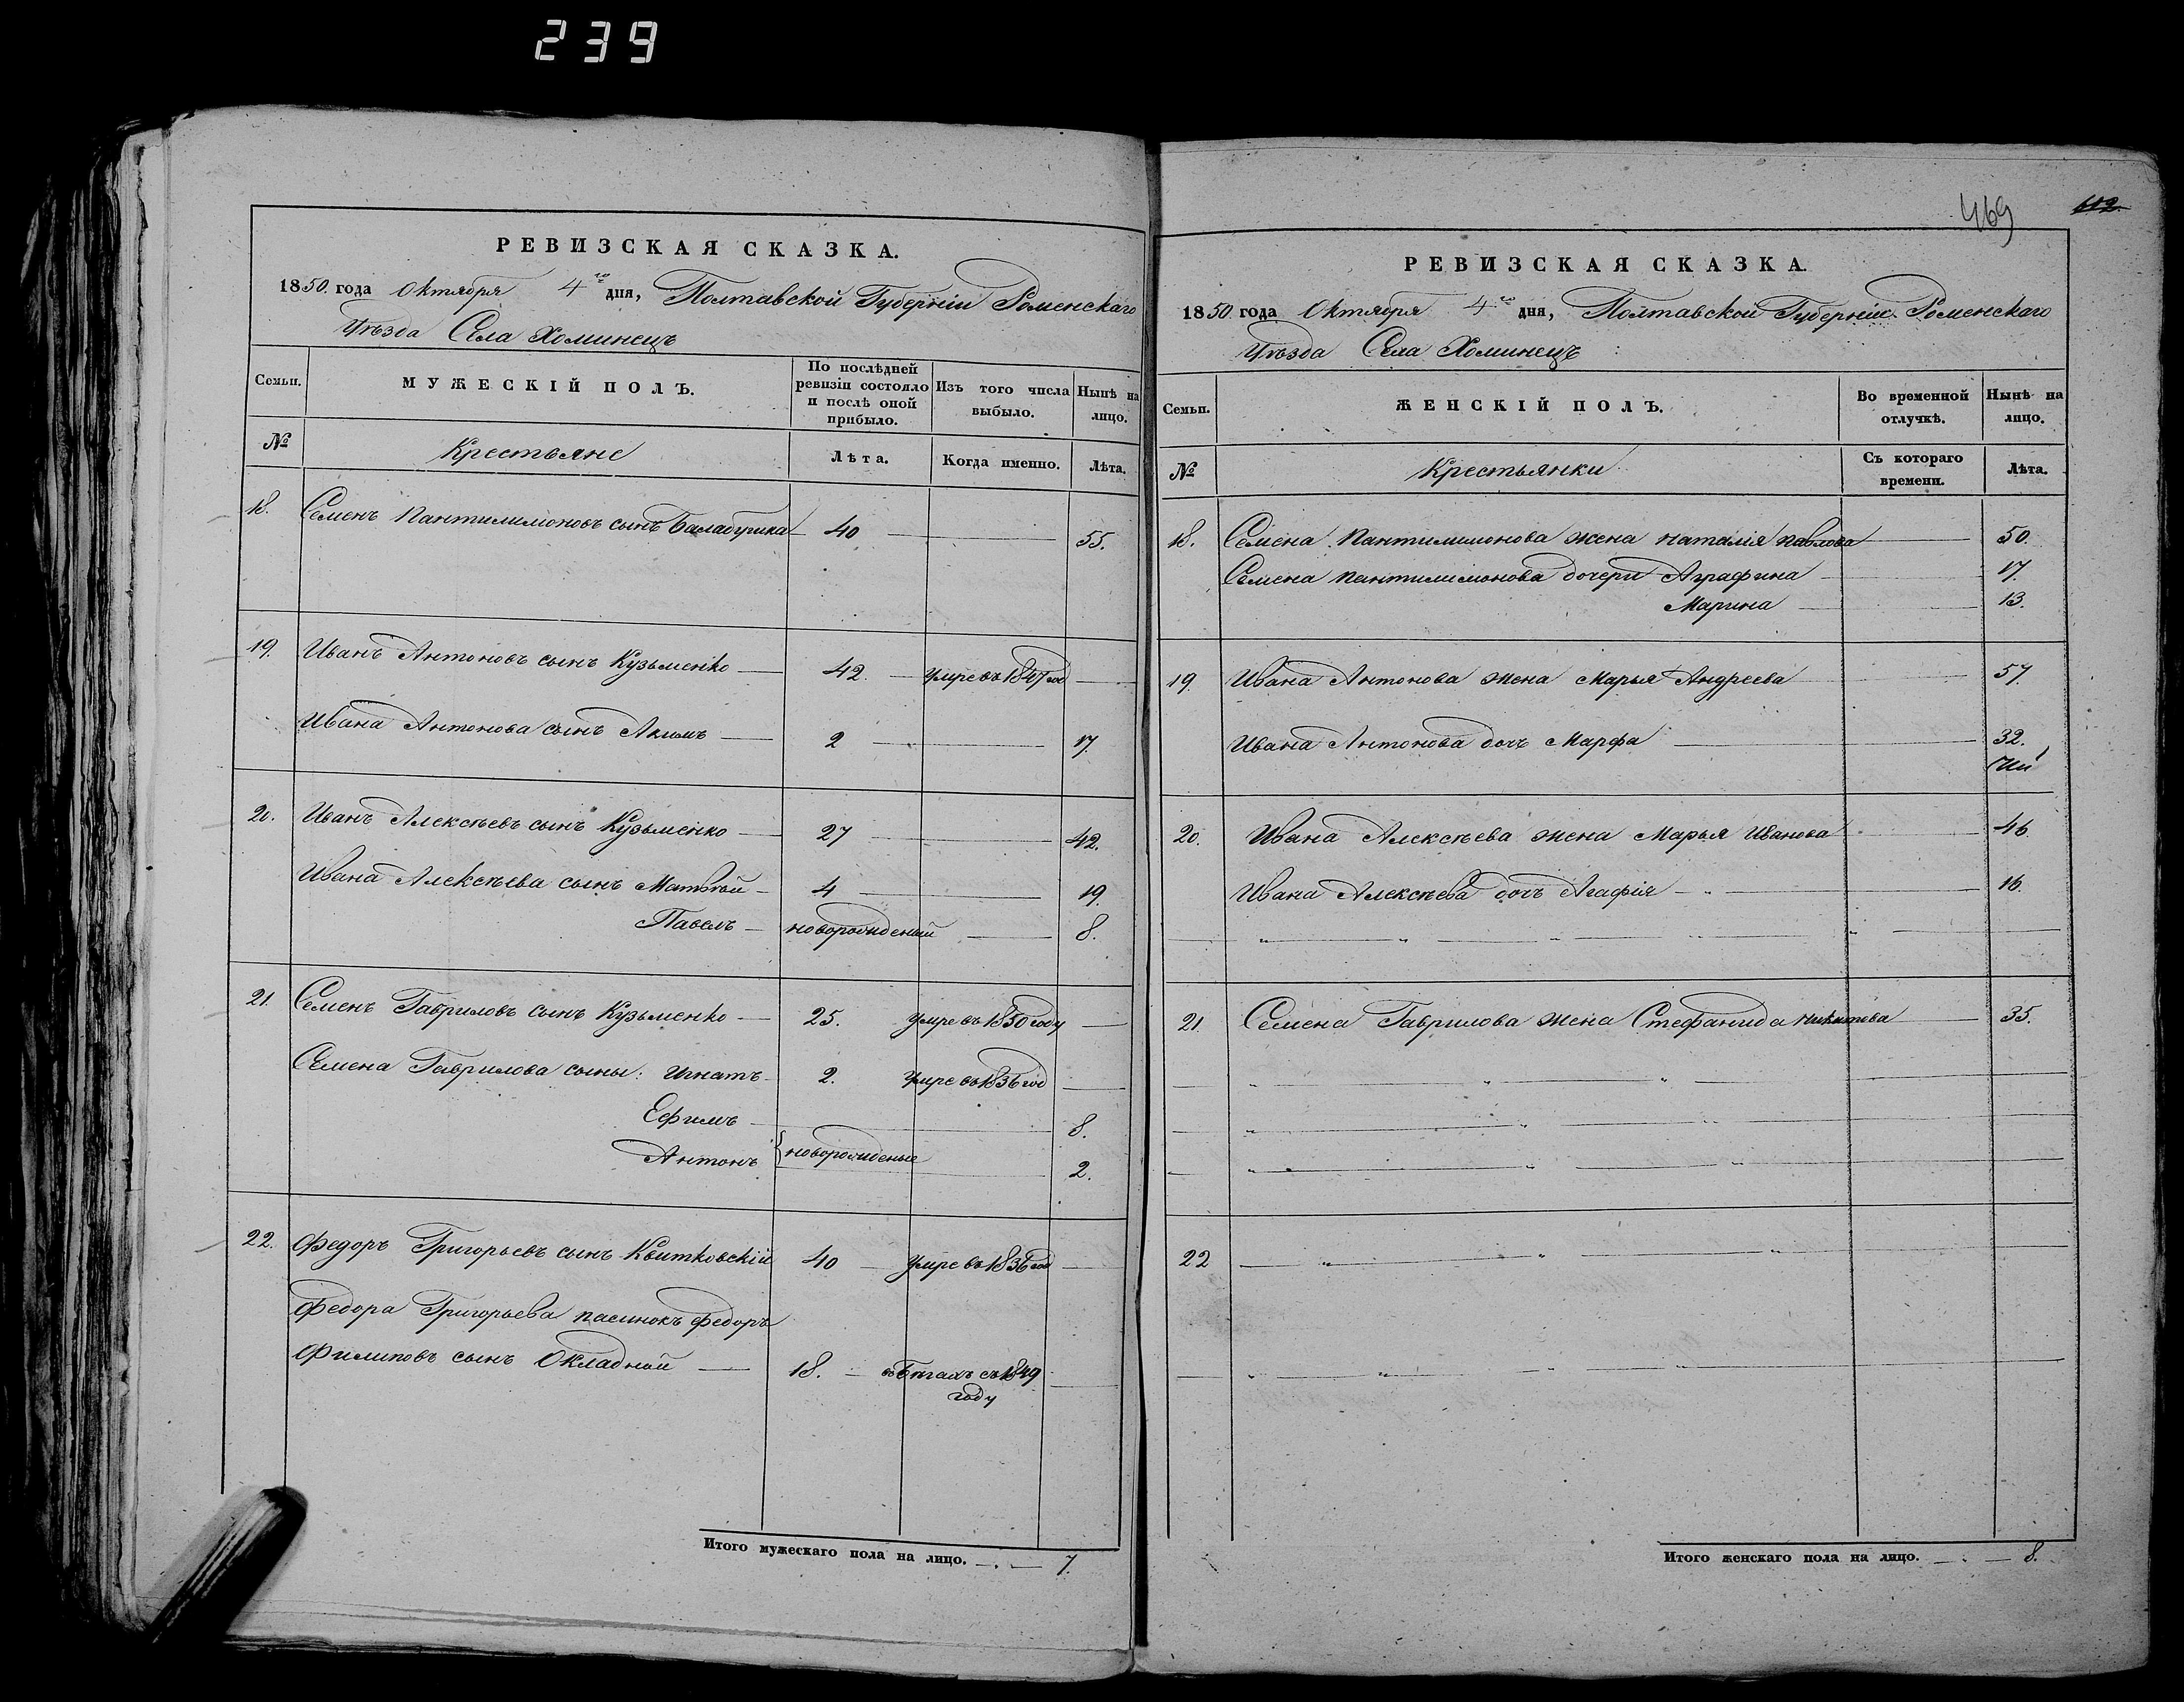 239
РЕВИЗСКАЯ СКАЗКА.
1850. года Октября 4го дня, Полтавской Губерніи Роменскаго
Уѣзда Села Хоминецъ
Семьи.
МУЖЕСКІЙ ПОЛЪ.
По послѣдней ревизіи состояло и послѣ оной прибыло.
Изъ того числа выбыло.
Нынѣ на лицо.
№
Крестьяне
Лѣта.
Когда именно.
Лѣта.
18. Семенъ Пантилимоновъ сынъ Балабушка 40 55.
19. Иванъ Антоновъ сынъ Кузьменко 42 Умре въ 1847 год
Ивана Антонова сынъ Акимъ 2 17.
20. Иванъ Алексѣевъ сынъ Кузьменко 27 42.
Ивана Алексѣева сынъ Матвѣй 4 19.
Павелъ новорожденый 8.
21. Семенъ Гавриловъ сынъ Кузьменко 25. Умре въ 1850 году
Семена Гаврилова сыны: Игнатъ 2. Умре въ 1836 год
Ефимъ 8.
Антонъ новорожденые 2.
22. Федоръ Григорьевъ сынъ Квитковскій 40 Умре въ 1836 год
Федора Григорьева пасинокъ Федоръ
Филиповъ сынъ Окладной 18. въ Бѣгахъ съ 1849
году
Итого мужескаго пола на лицо. 7.
469 612.
РЕВИЗСКАЯ СКАЗКА.
1850 года Октября 4го дня, Полтавской Губерніи Роменскаго
Уѣзда Села Хоминецъ
Семьи.
ЖЕНСКІЙ ПОЛЪ.
Во временной отлучкѣ.
Нынѣ на лицо.
№
Крестьянки
Съ котораго времени.
Лѣта.
18. Семена Пантилимонова жена Наталія Павлова 50.
Семена Пантилимонова дочери Аграфина 17.
Марина 13.
19. Ивана Антонова жена Марья Андреева 57.
Ивана Антонова дочь Марфа 32.
20. Ивана Алексѣева жена Марья Иванова 46.
Ивана Алексѣева дочь Агафія 16.
21. Семена Гаврилова жена Стефанида Никитова 35.
22
Итого женскаго пола на лицо. 8.